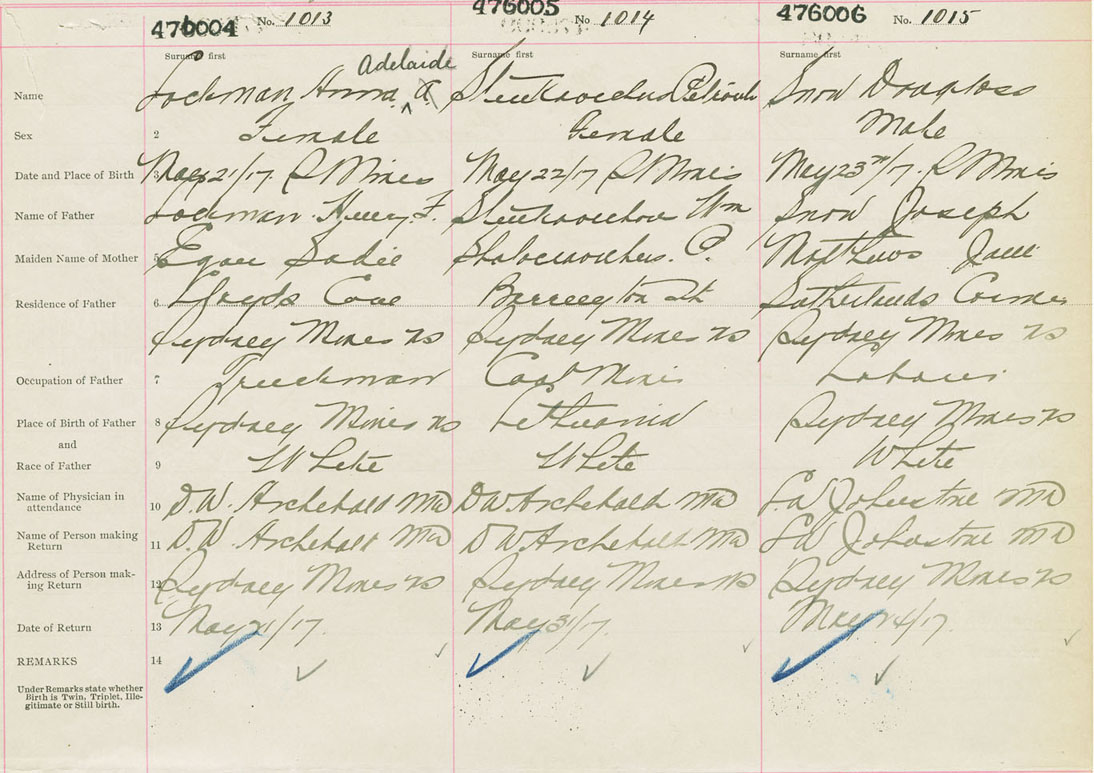 476004 No. 1013 476005 No 1014 476006 No. 1015
Surname first Surname first Surname first
Adelaide
Name Lockman Anna ^ A Snow Douglass
Sex 2 Female Female Male
Date and Place of Birth 3 May 21/17 S Mines May 22/17 S Mines May 23rd/17. S Mines
Name of Father Lockman Henry F. Wm Snow Joseph
Maiden Name of Mother 5 Egan Sadie C. Mathews Jane
Residence of Father 6 Lloyds Cove Barrington St Sutherlands Corner
Sydney Mines NS Sydney Mines NS Sydney Mines NS
Occupation of Father 7 Truckman Coal Miner Laborer
Place of Birth of Father 8 Sydney Mines NS Lethuania Sydney Mines NS
and
Race of Father 9 White White White
Name of Physician in
attendance 10 D.W. Archibald MD DW Archibald MD LW Johnstone MD
Name of Person making
Return 11 D.W. Archibald MD DW Archibald MD LW Johnstone MD
Address of Person mak-
ing Return 12 Sydney Mines NS Sydney Mines NS Sydney Mines NS
Date of Return 13 May 21/17. May 31/17. May 24/17
REMARKS 14
Under Remarks state whether
Birth is Twin, Triplet, Ille-
gitimate or Still birth.